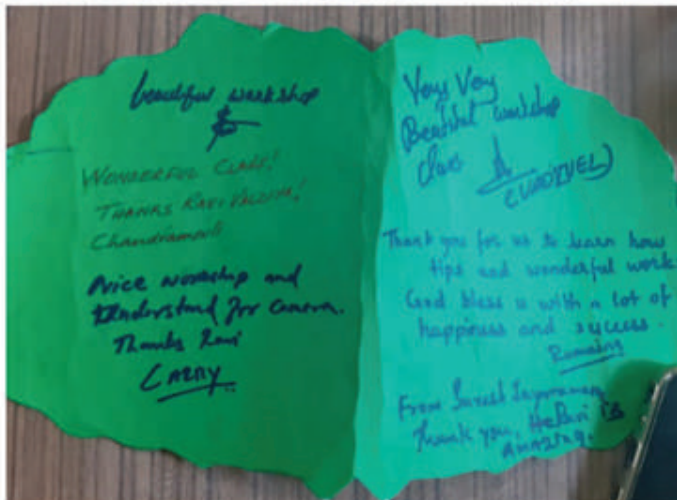 beautiful workshop
WONDERFUL CLASS!
THANKS RAVI VALLIYA!
Chandramouli
Nice workshop and
Understand for Camera.
Thanks Ravi
Very Very
Beautiful workshop
Class
(VADIVEL)
Thank you for us to learn how
tips and wonderful work
God bless u with a lot of
happiness and success.
From Suresh
Thank you,
AMAZING.